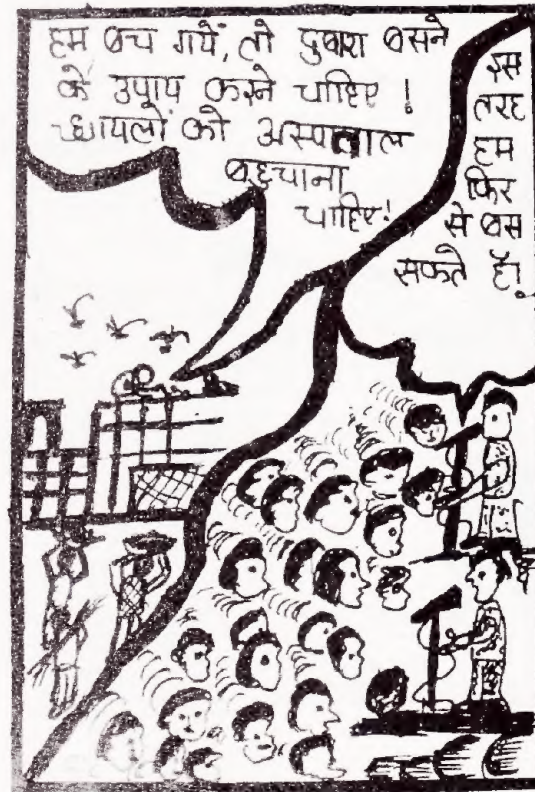 हम बच गयें, तो दुबारा बसने
के उपाय करने चाहिए !
घायलों को अस्पताल
पहुचाना
चाहिए!
इस
तरह
हम
फिर
से बस
सकते हैं!